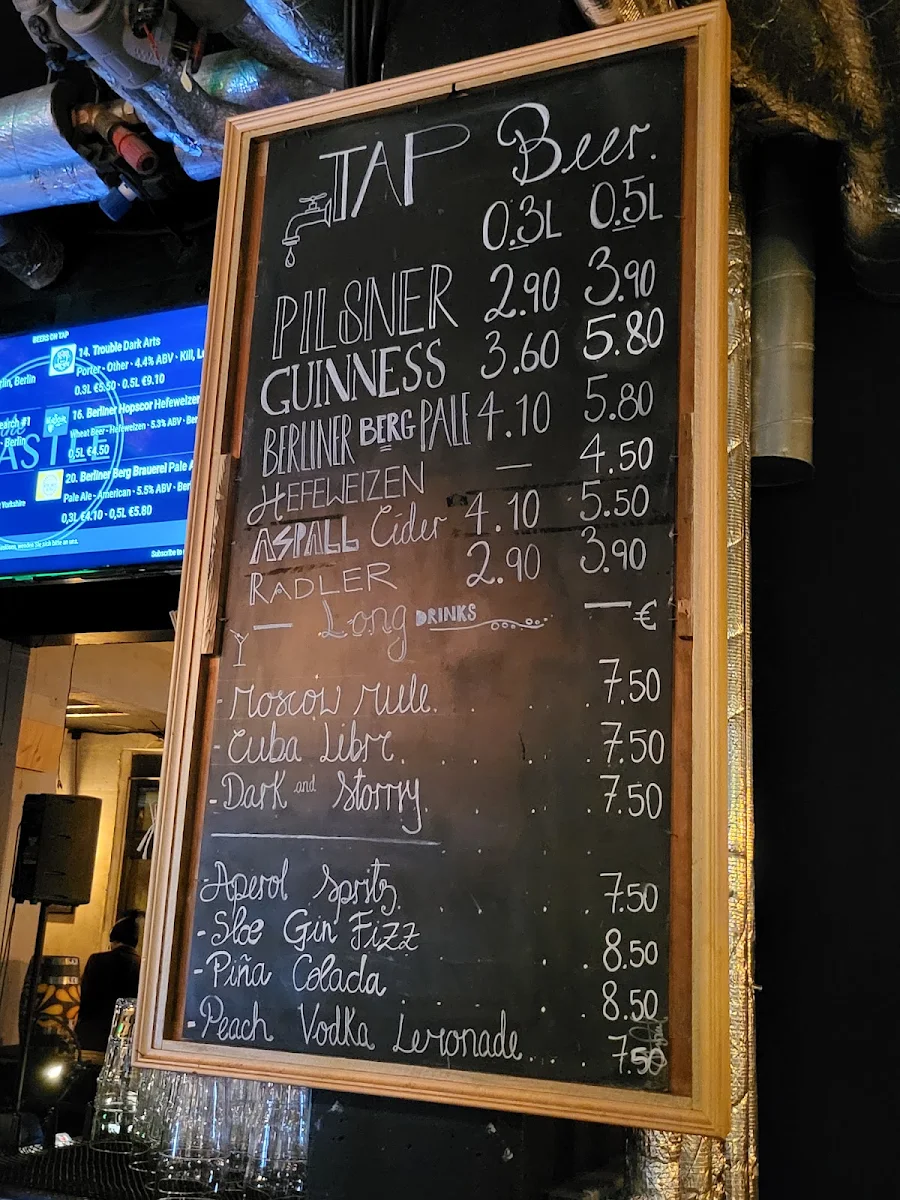 TAP Beer.
0.3L 0.5L
PILSNER 2.90 3.90
GUINNESS 3.60 5.80
BERLINER BERG PALE 4.10 5.80
HEFEWEIZEN — 4.50
ASPALL Cider 4.10 5.50
RADLER 2.90 3.90
— Long DRINKS — €
- Moscow Mule. . . . 7.50
- Cuba Libre. . . . . 7.50
- Dark and Storrry. . . . 7.50
- Aperol Spritz . . . . 7.50
- Sloe Gin Fizz . . . 8.50
- Piña Colada . . . . 8.50
- Peach Vodka Lemonade. . . 7.50
BEERS ON TAP
14. Trouble Dark Arts
Porter - Other · 4.4% ABV · Kill,
0.3L €5.50 · 0.5L €9.10
Berlin
16. Berliner Hopscor Hefeweizen
Wheat Beer - Hefeweizen · 5.3% ABV · Ber
0,5L €4.50
20. Berliner Berg Brauerei Pale A
Pale Ale - American · 5.5% ABV · Ber
0,3L €4.10 · 0,5L €5.80
Yorkshire
Subscribe to